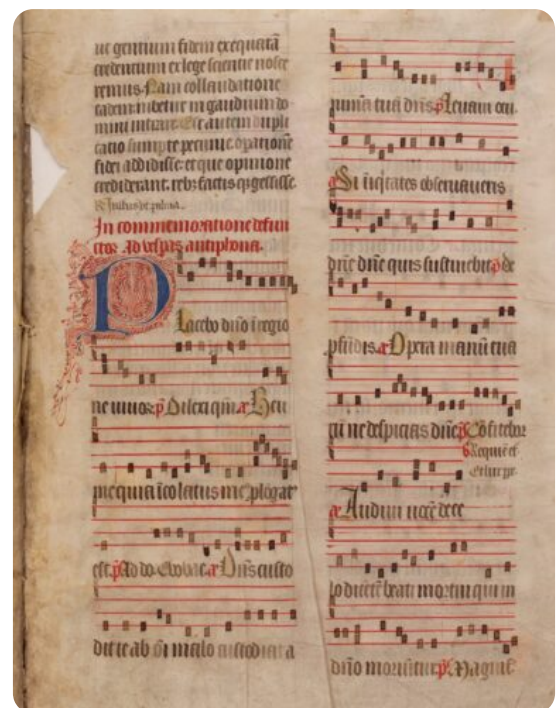 ut gentium fidem exequitā
credentium ex lege scientie nosce
remus. Nam collaudatione
eadem iubetur in gaudium do
mini intrare. Est autem dupli
catio sumpte pecunie. opatione
fidei addidisse. et que opinione
crediderant. rebꝫ factis gessisse.
In commemoratione defun
ctoꝝ. Ad vesꝑas antiphona.
Placebo dn̄o ī regio
ne viuoꝝ p̄s Dilexi qm̄ a Heu
me quia īcolatus me' ꝓlōgat'
est. p̄s Ad do. Euouae. a Dn̄s custo
dit te ab oī malo custodiat a
nimā tuā dn̄s. p̄s Leuaui ocu.
a Si iniq̄tates obseruaueris
dn̄e dn̄e quis sustinebit. p̄s de
ꝓfūdis. a Opera manuū tua
rū ne despicias dn̄e. p̄s Cōfitebor
Requiē et̄
a Audiui uocē de ce
lo dicētē beati mortui qui in
dn̄o moriūtur. p̄s Magnif